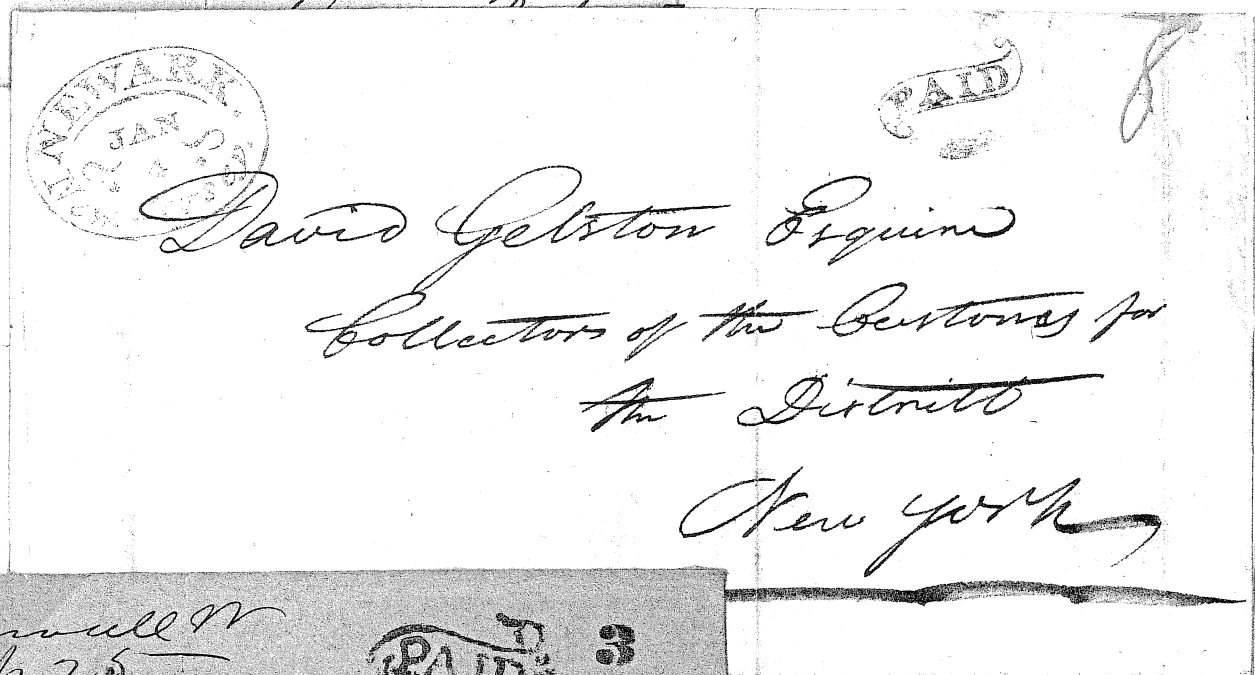 NEWARK.
JAN
4
PAID
8
David Gelston Esquire
Collectors of the Customs for
the District
New York
PAID
3
25